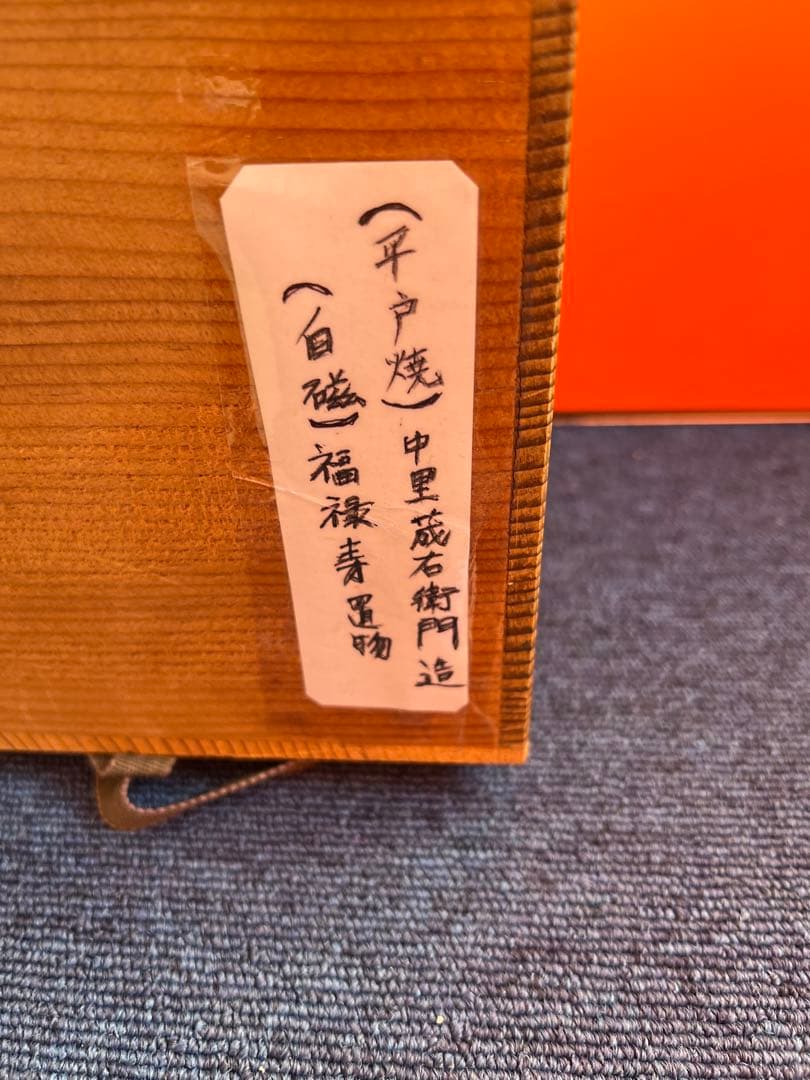 (平戸焼)中里茂右衛門造
(白磁)福禄寿置物